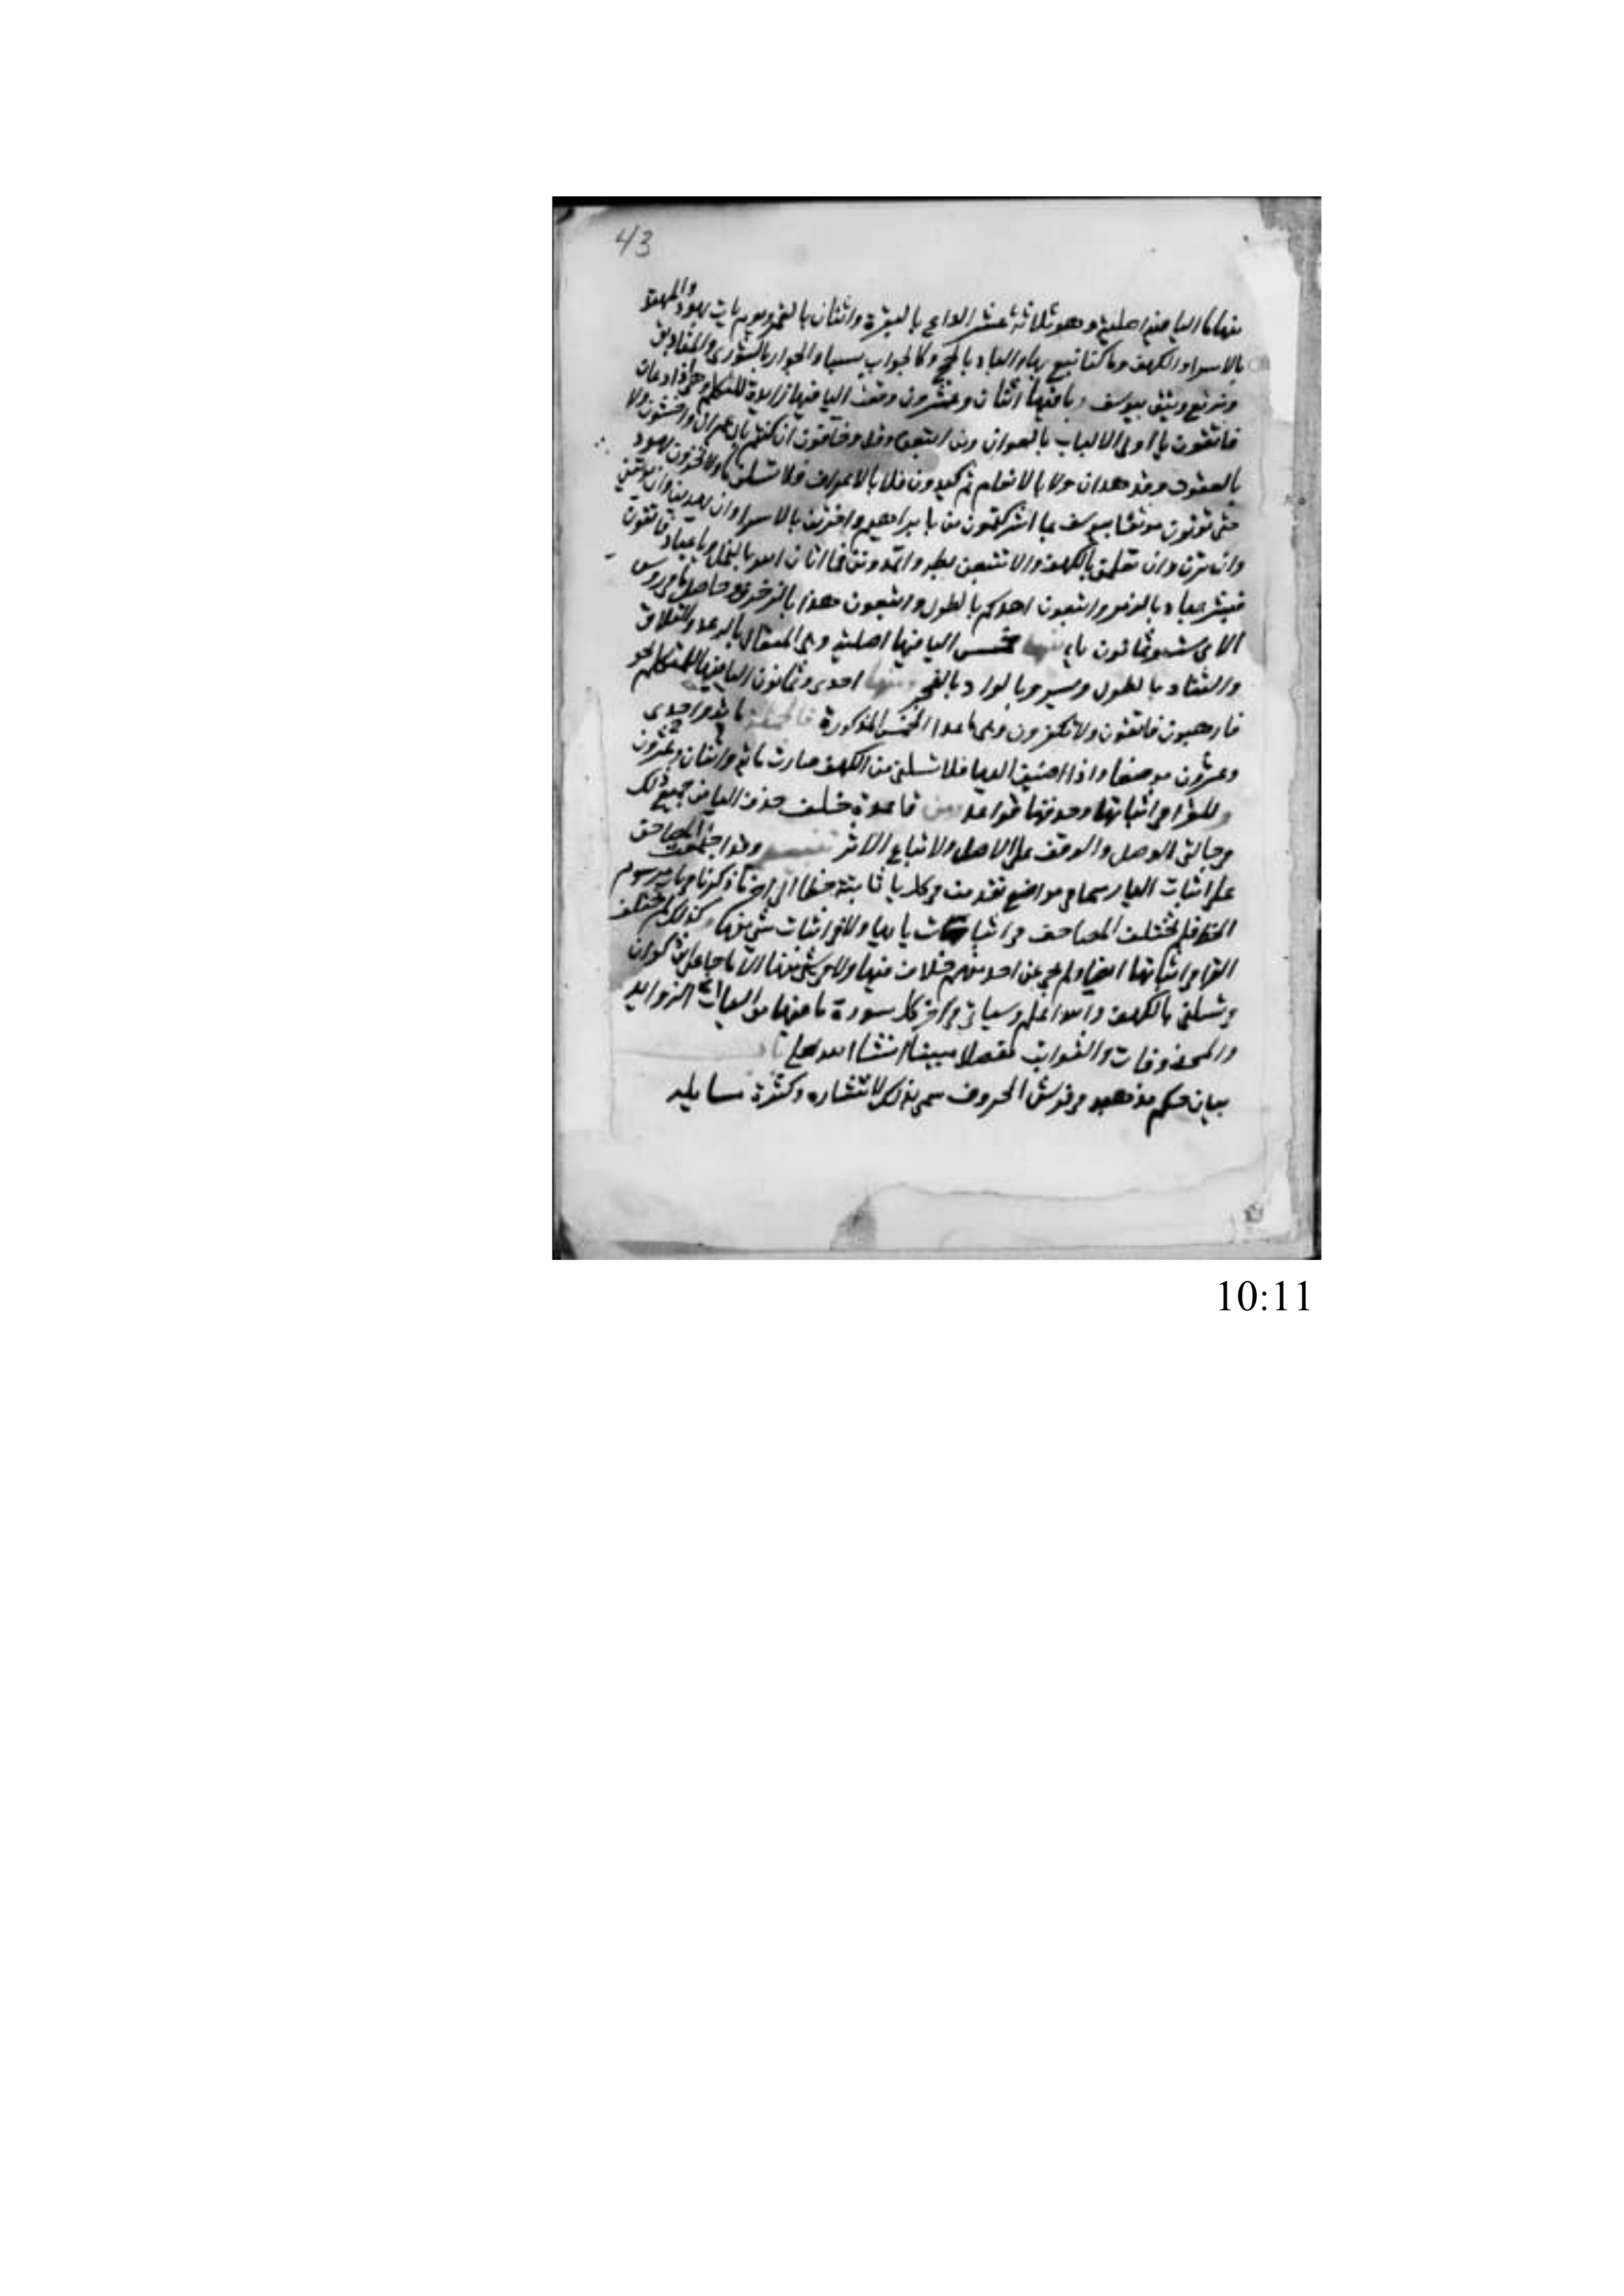 43
منها ما اليا فيه اصلية وهو ثلاثة عشر الداع بالبقرة واثنان بالقمر ويوم يات بهود والمهتد
بالاسرا والكهف وما كنا نبغ بها والباد بالحج وكالجواب بسبا والجوار بالشورى والمناد بق
ونرتع ويتق بيوسف و منها اثنان وعشرون وقعت اليا فيها زايدة للمتكلم وهي اذا دعان
فاتقون يا اولى الالباب بالعوان ومن اتبعن وقل وخافون ان كنتم بال عمران واخشون ولا
بالعقود وقد هدان ولا بالانعام ثم كيدون فلا بالاعراف فلا تسلن ما ولا تخزون بهود
حتى توتون موثقا بيوسف بما اشركتمون من بابراهيم واخرتن بالاسرا وان يهدين وان يوتين
وان ترن وان تعلمن بالكهف والا تتبعن بطه واتمدونن فما اتان الله بالنمل ويا عباد فاتقون
فبشر عباد بالزمر واتبعون اهدكم بالطول واتبعون هذا بالزخرف وحاصل ما في روس
الاى ست وثمانون يا منها خمس اليا فيها اصلية وهى المتعال بالرعد والتلاق
والتناد بالطول ويسر وبالواد بالفجر ومنها احدى وثمانون اليا فيها للمتكلم نحو
فارهبون فاتقون ولا تكفرون وهى ما عدا الخمس المذكورة فالجملة ماية واحدى
وعشرون موضعا واذا اضيف اليها فلا تسلنى من الكهف صارت ماية واثنان وعشرون
وللقرا فى اثباتها وحذفها قواعد فمن قاعدة خلف حذف اليا من جميع ذلك
فى حالتى الوصل والوقف على الاصل ولاتباع الاثر تنبيه وقد اجتمعت المصاحف
على اثبات اليا رسما فى مواضع تقدمت وكل يا ثابتة خطا الى اخر ما ذكرنا فى باب مرسوم
الخط فلم تختلف المصاحف فى اثبات يا بها ولا فى اثبات شى منها كذلك لم تختلف
القرا فى اثباتها ايضا ولم يجى عن احد منهم خلاف فيها ولا فى شى منها الا ما جا عن ابن ذكوان
فى تسلنى بالكهف والله اعلم وسياتى فى اخر كل سورة ما فيها من اليات الزوايد
والمحذوفات والثوابت مفصلا مبينا انشا الله تعالى
بيان حكم مذهبه فى فرش الحروف سمى بذلك لانتشاره وكثرة مسايله
10:11